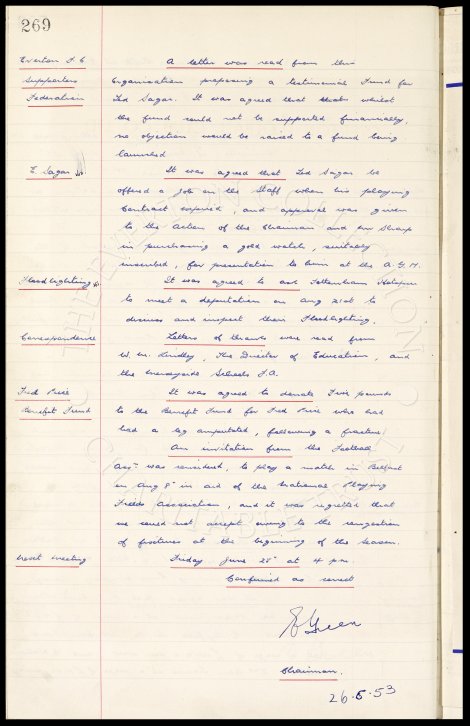 269
Everton F.C. A letter was read from this
Supporters Organisation proposing a testimonial Fund for
Federation Ted Sagar. It was agreed that that whilst
the fund could not be supported financially,
no objection would be raised to a fund being
launched.
E. Sagar It was agreed that Ted Sagar be
offered a job on the Staff when his playing
Contract expired, and approval was given
to the Action of the Chairman and Mr Sharp
in purchasing a gold watch, suitably
inscribed, for presentation to him at the A.G.M.
Floodlighting It was agreed to ask Tottenham Hotspur
to meet a deputation on Aug 21st to
discuss and inspect their Floodlighting.
Correspondence Letters of thanks were read from
W. M. Lindley, The Director of Education, and
the Merseyside Schools F.A.
Fred It was agreed to donate Five pounds
Benefit Fund to the Benefit Fund for Fred who had
had a leg amputated, following a fracture
An invitation from the Football
Assn was considered, to play a match in Belfast
on Aug 8th in aid of the National Playing
Fields Association, and it was regretted that
we could not accept owing to the congestion
of fixtures at the beginning of the season.
Next meeting Friday June at 4 pm.
Confirmed as correct
E Green
Chairman.
26.6.53